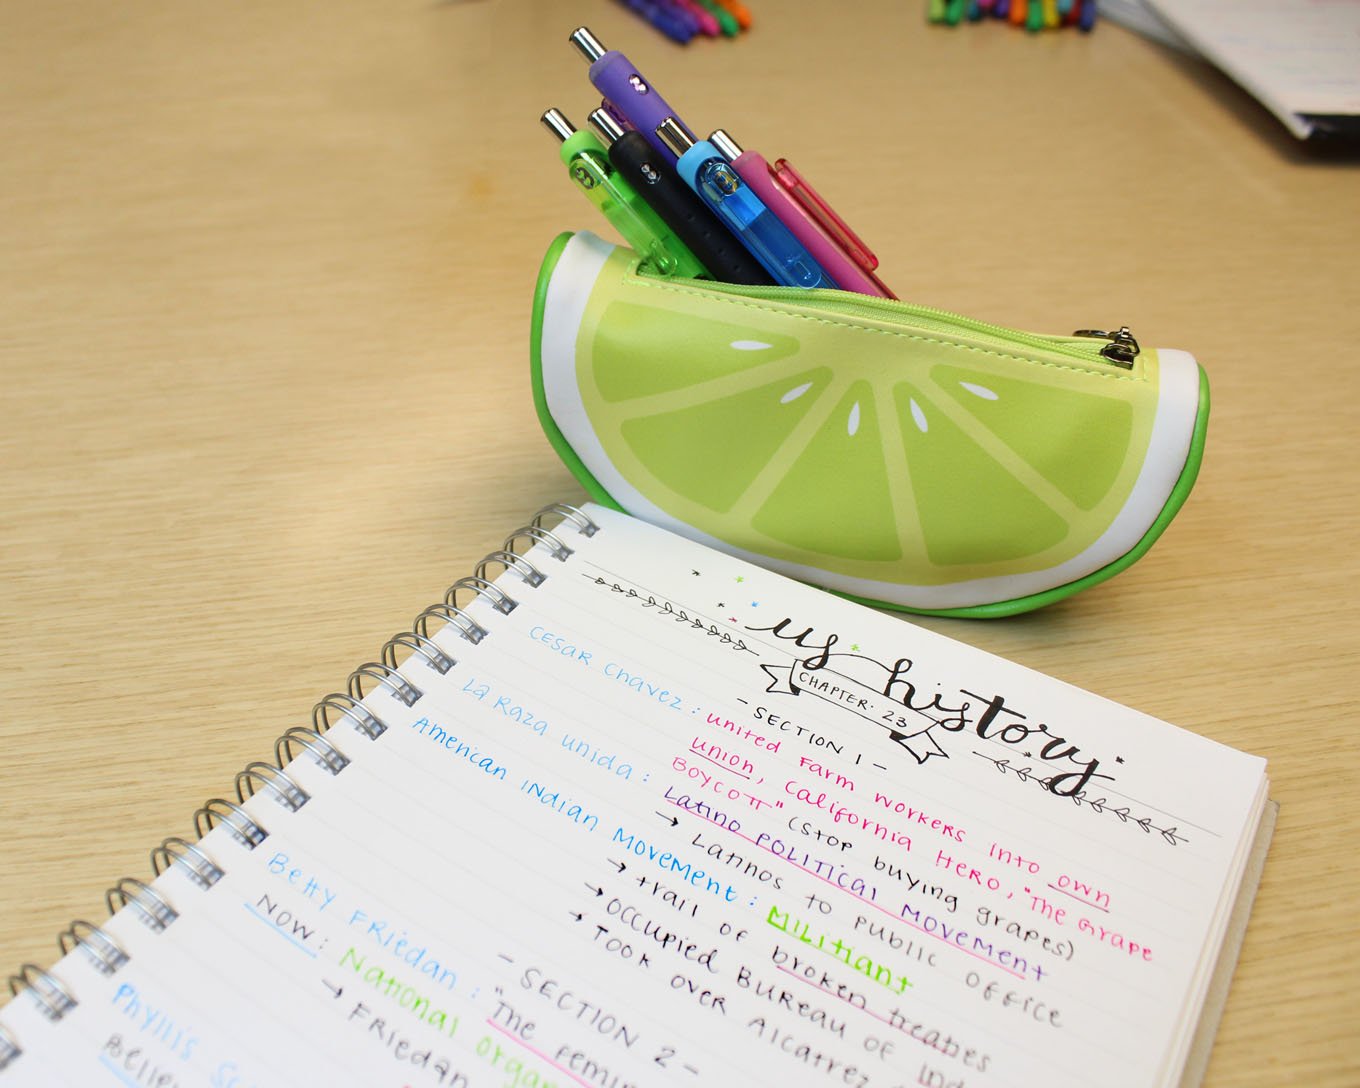 us history.
CHAPTER: 23
- SECTION 1 -
Cesar Chavez: united farm workers into own
union, California Hero, "The Grape
Boycott" (stop buying grapes)
La Raza Unida: Latino political movement
→ Latinos to public office
American Indian Movement: Militiant
→ trail of broken treaties
→ occupied Bureau of Ind
→ Took over Alcatrez
- SECTION 2 -
Betty Friedan: "The femin
NOW: National organ
→ Friedan
Phyllis Sc